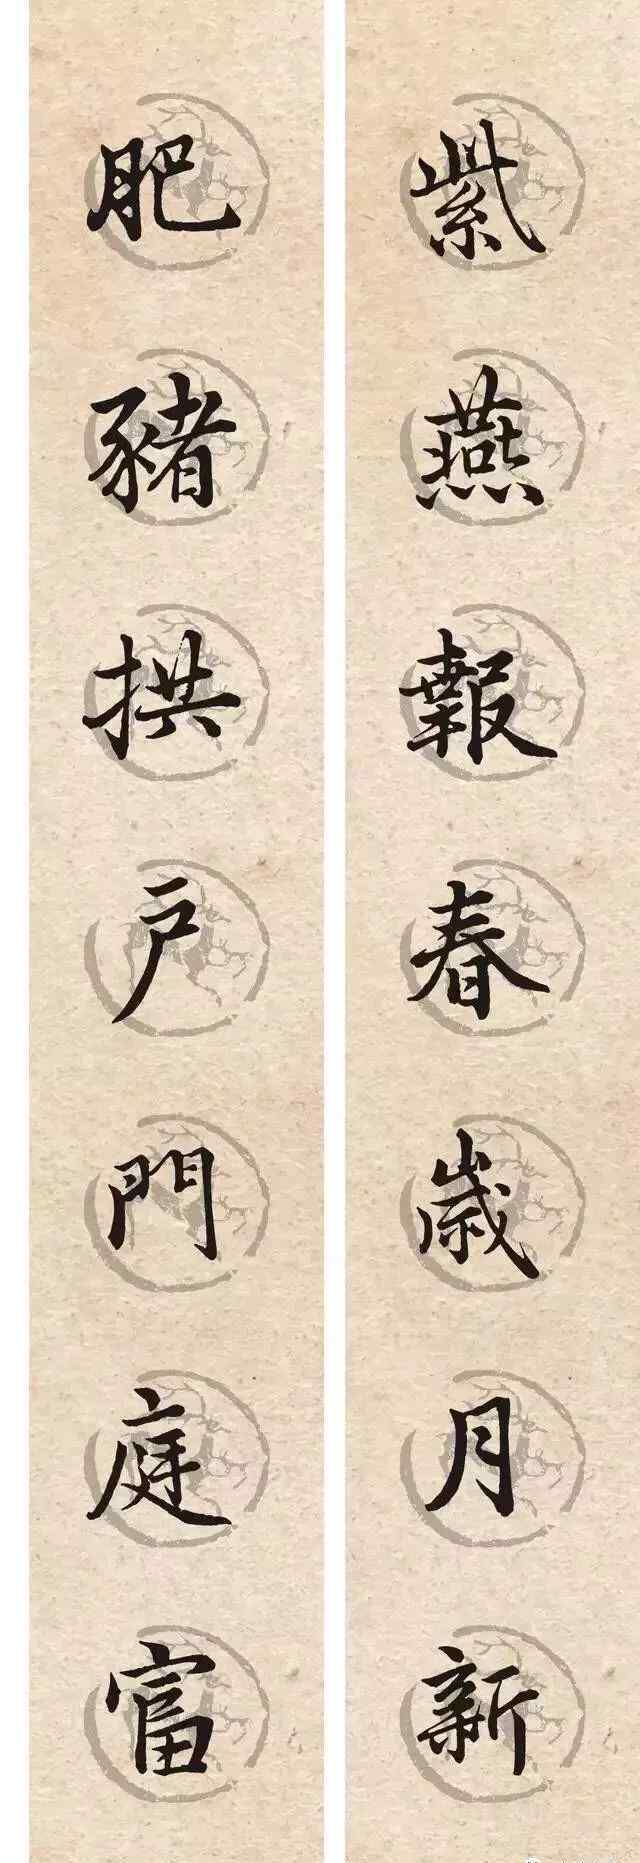 紫燕報春歳月新
肥豬拱户門庭富